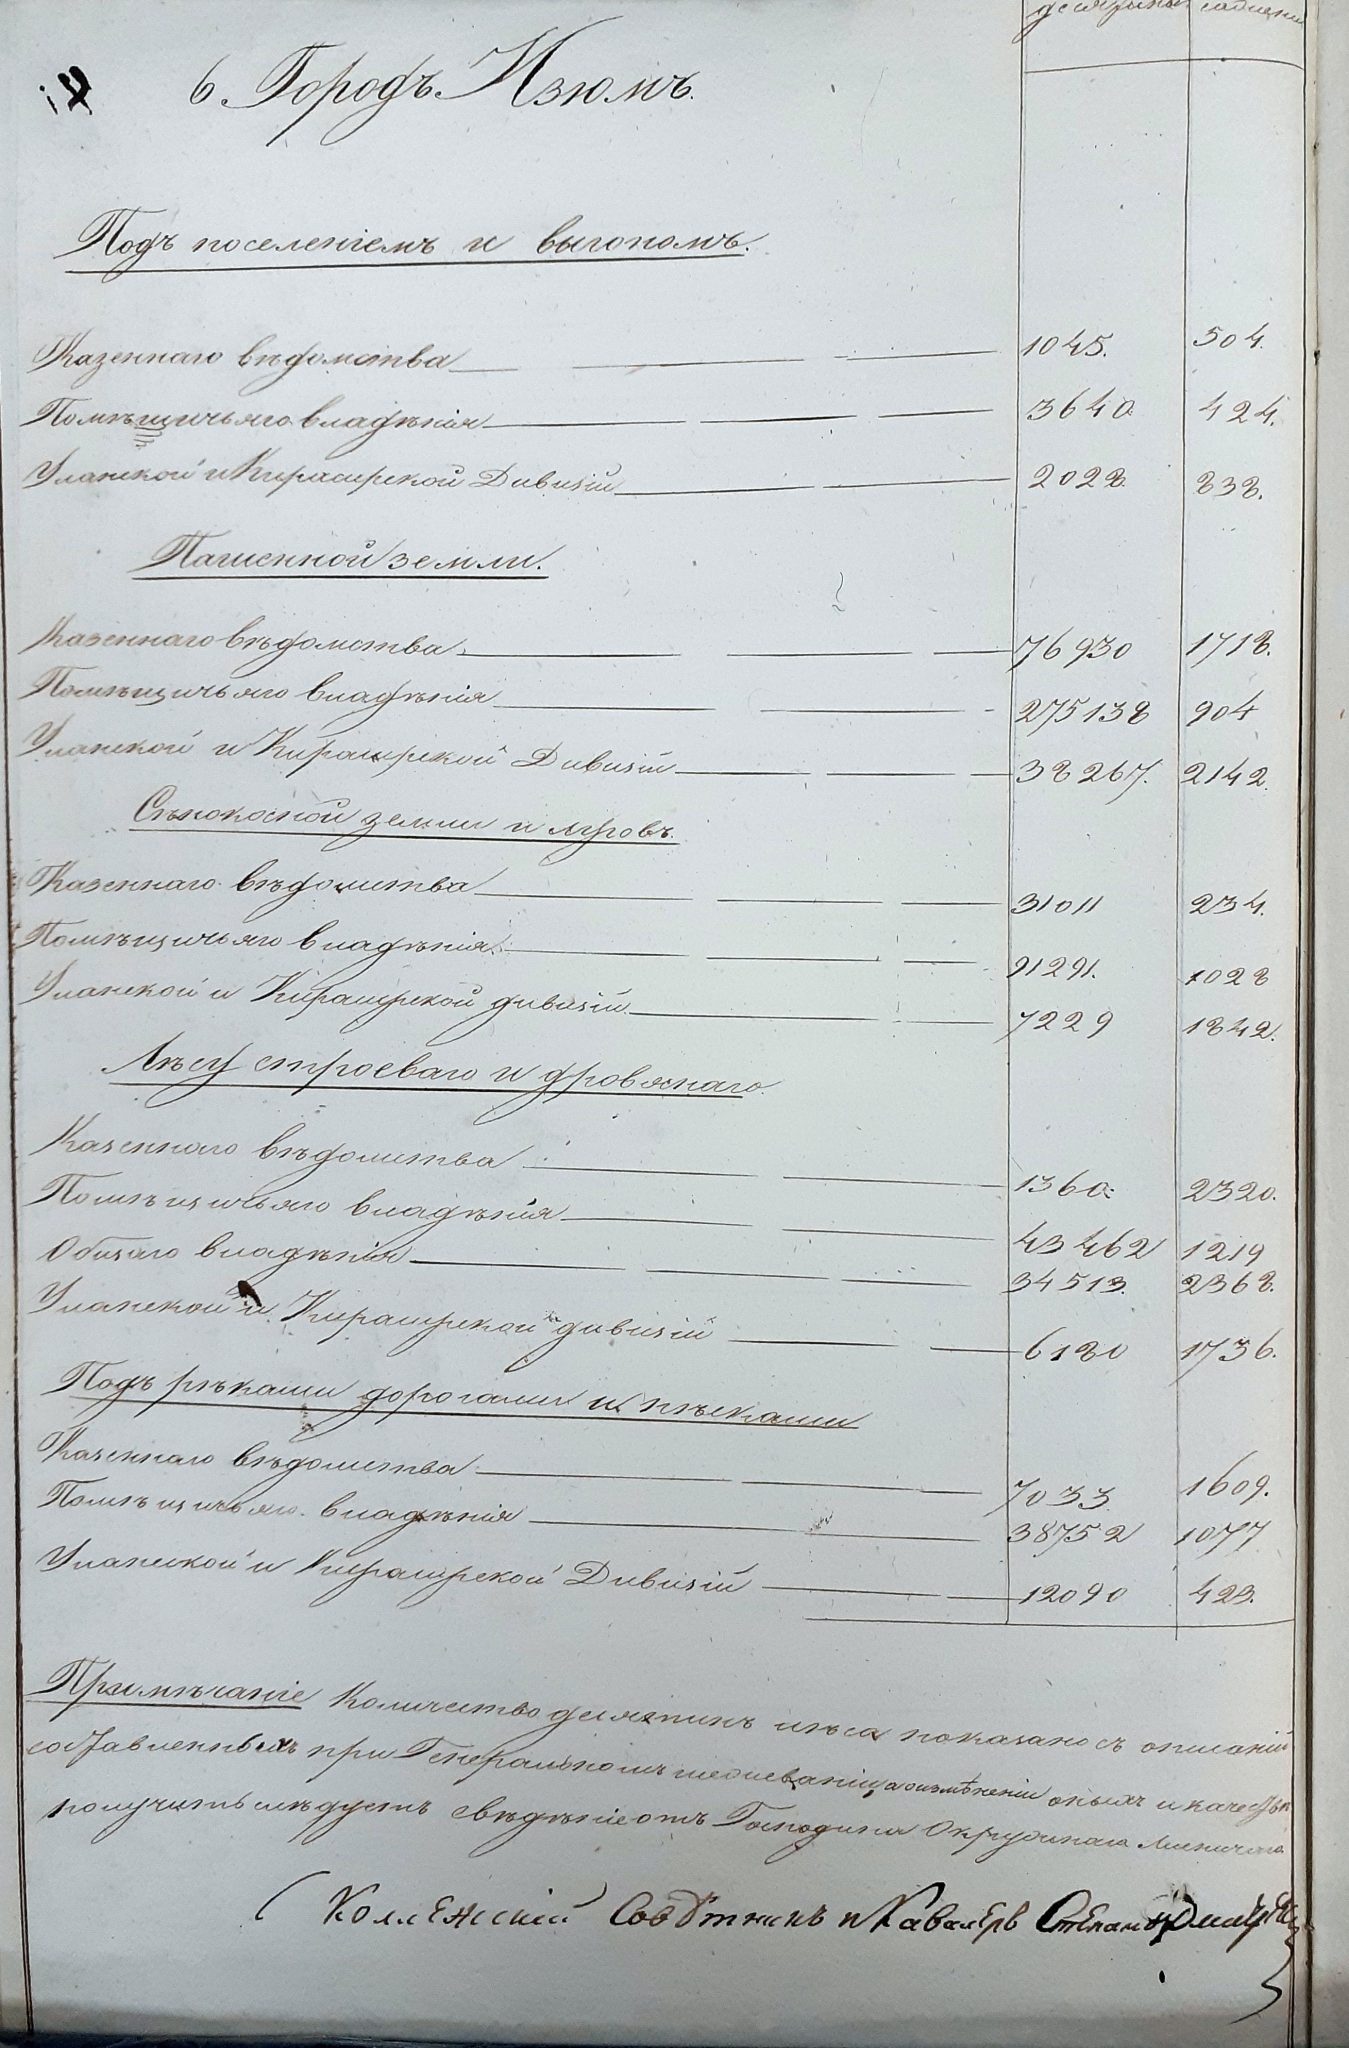 десятины сажени
6. Городъ Изюмъ.
Подъ поселеніемъ и выгономъ.
Казеннаго вѣдомства 1045. 504.
Помѣщичьяго владѣнія 3640. 424.
Уланской и Кирасирской Дивизій 2028. 838.
Пашенной земли.
Казеннаго вѣдомства 76930 1718.
Помѣщичьяго владѣнія 275138 904
Уланской и Кирасирской Дивизій 38267. 2142.
Сѣнокосной земли и луговъ.
Казеннаго вѣдомства 31011 234.
Помѣщичьяго владѣнія 91291. 1028
Уланской и Кирасирской дивизій 7229 1842.
Лѣсу строеваго и дровянаго.
Казеннаго вѣдомства 1360. 2320.
Помѣщичьяго владѣнія 43462 1219
Общаго владѣнія 34513. 2368.
Уланской и Кирасирской дивизій 6180 1736.
Подъ рѣками дорогами и пѣсками
Казеннаго вѣдомства 7033 1609.
Помѣщичьяго владѣнія 38752 1077
Уланской и Кирасирской Дивизій 12090 423.
Примѣчаніе Количество десятинъ лѣса показано съ описаній
составленныхъ при Генеральномъ межеваніи, а о измѣненіи оныхъ и качествѣ
получить слѣдуетъ свѣдѣніе отъ Господина Окружнаго Лѣсничаго
Коллежскій Совѣтникъ и Кавалеръ Степанъ